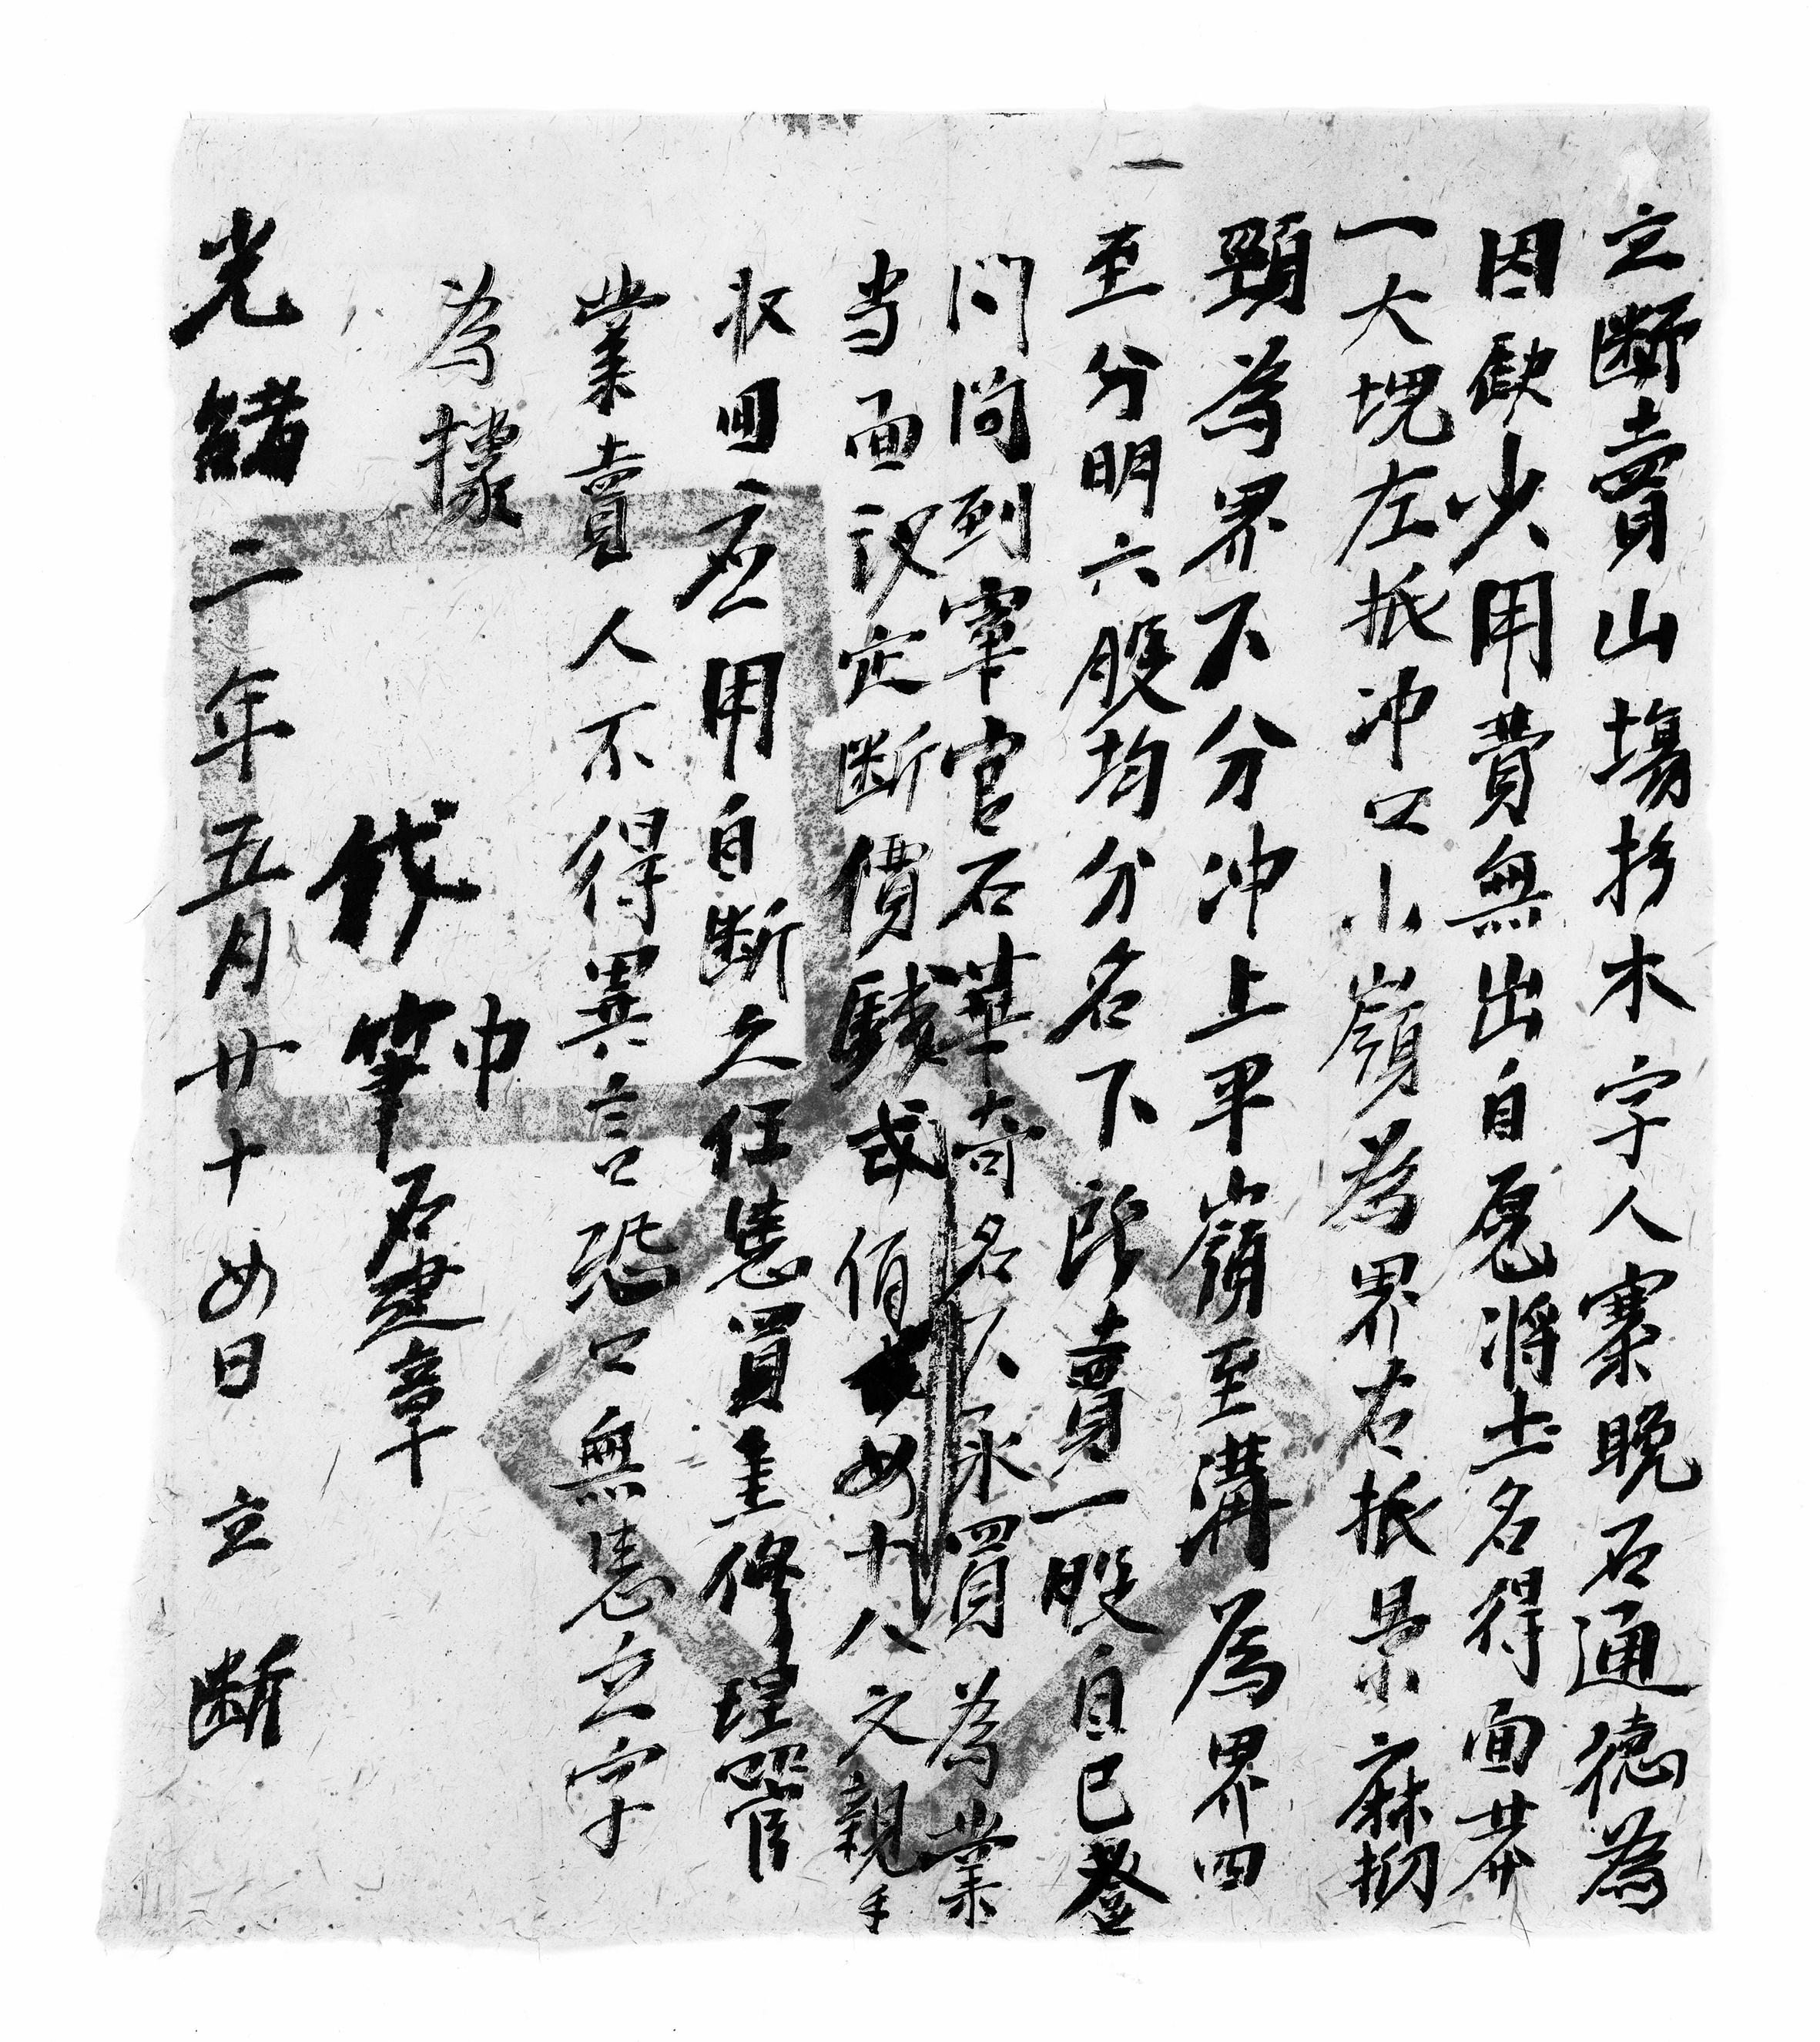 立断賣山塲杉木字人寨晚石通德為
因缺少用費無出自愿將土名得面莽
一大塊左抵冲口小嶺為界右抵景麻㧅
頸為界下分冲上平嶺至溝為界四
至分明六股均分名下所賣一股自己登
门问到宰官石華奇名下承買為業
当面议定断價錢弍佰廿八文親手
收回应用自断之任憑買主修理管
業賣人不得異言恐口無憑立字
為據
代筆石建章
光緒二年五月廿十四日立断